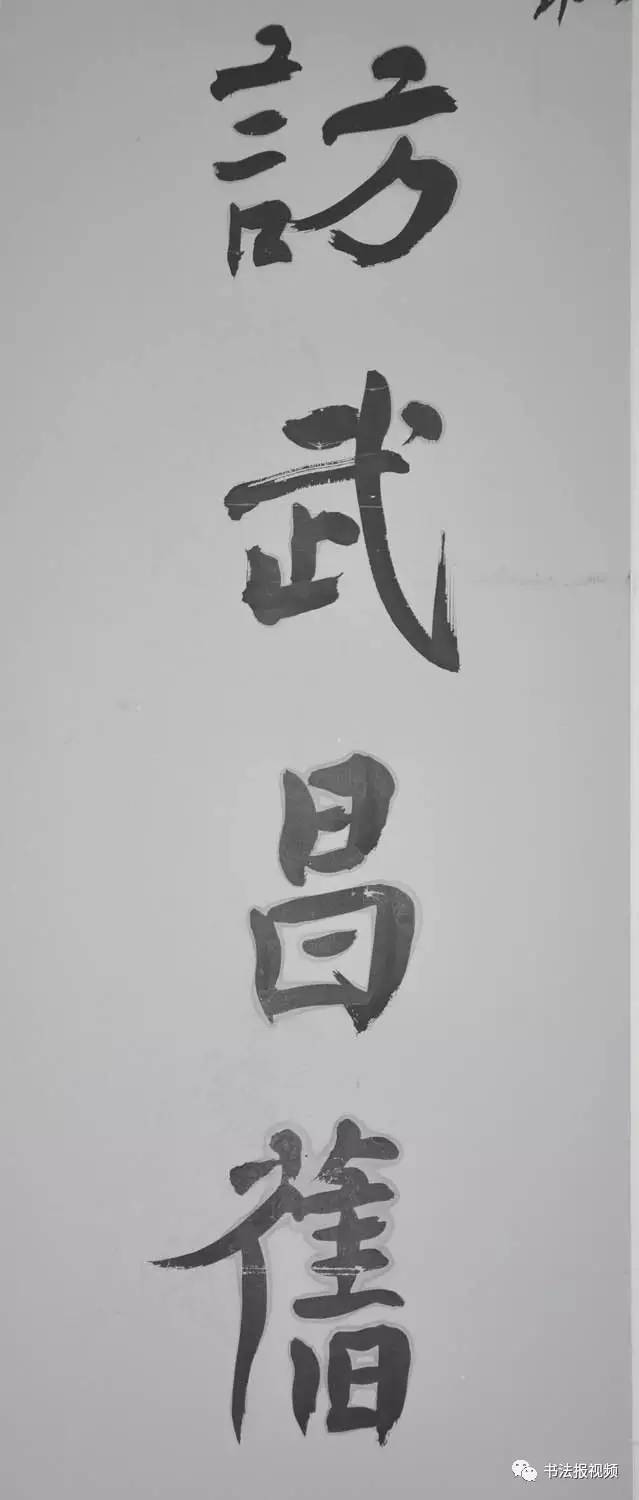 訪武昌舊
书法报视频